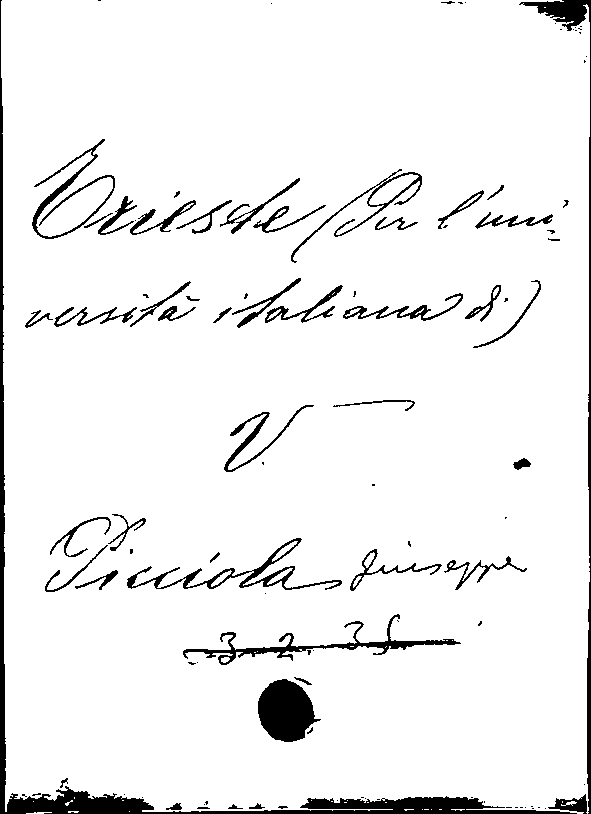 Trieste (Per l'uni-
versità italiana di)
V. —
Picciola Giuseppe
3. 2. 35